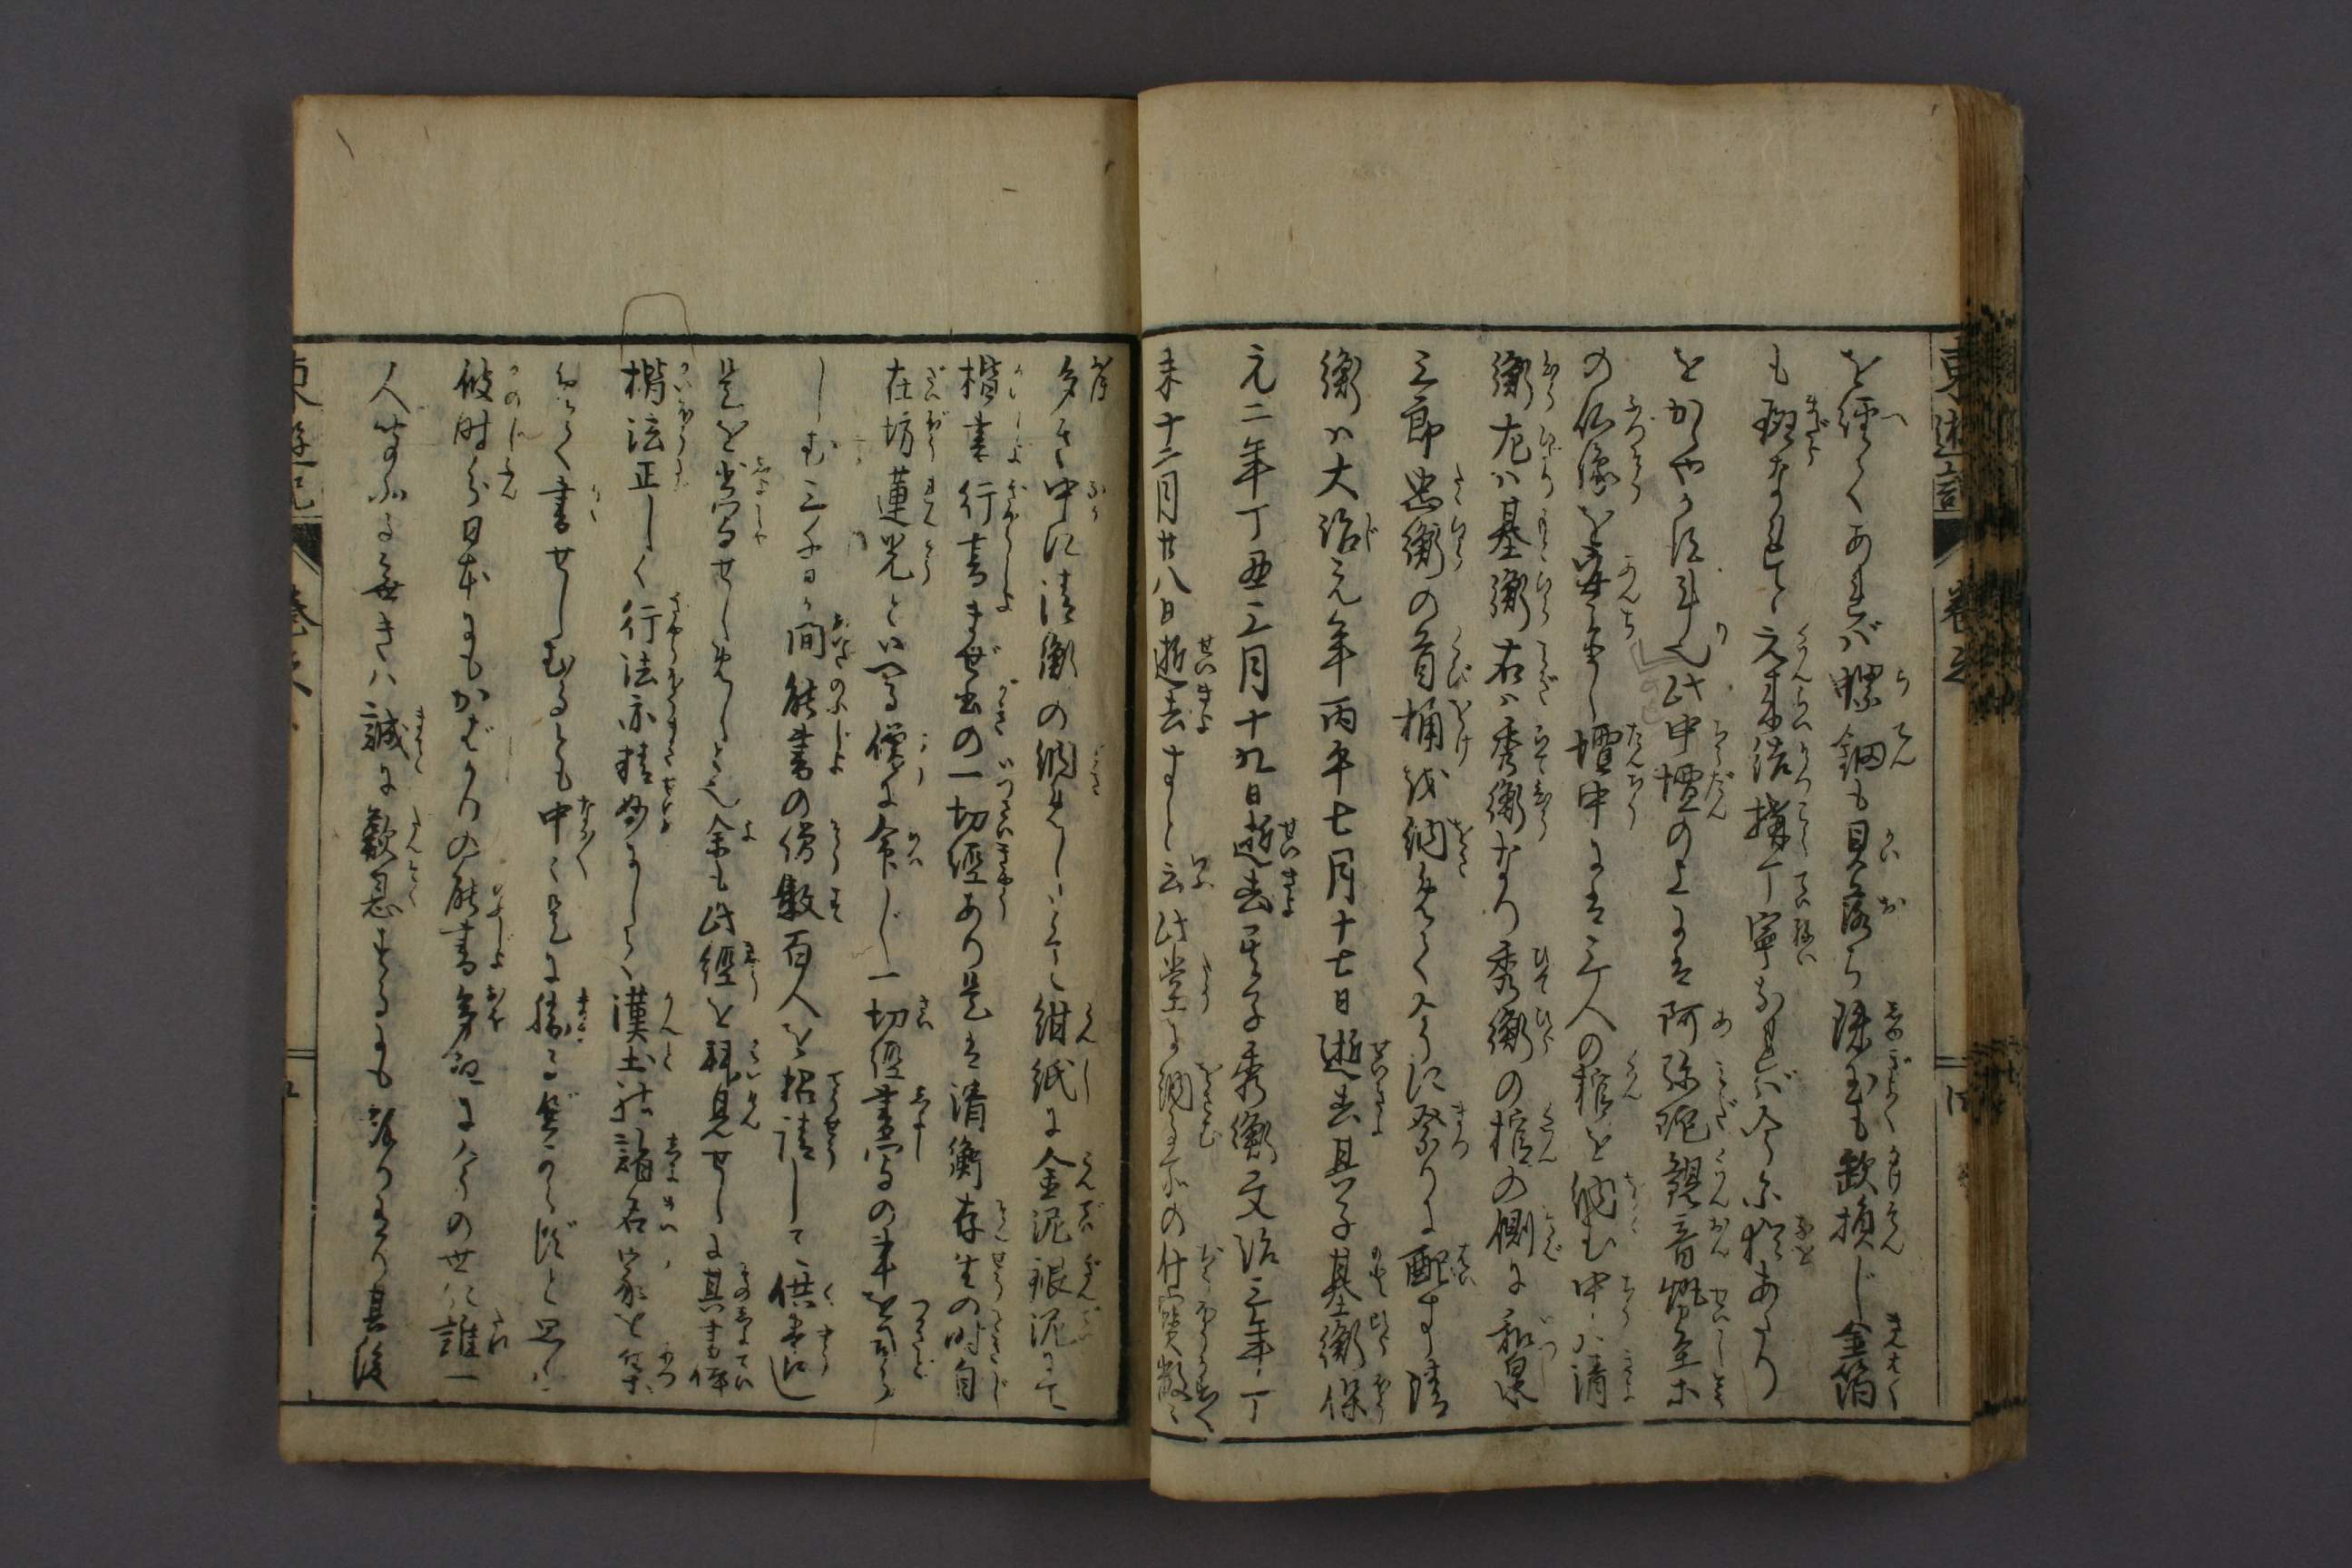 東遊記 巻之
を経てあれバ螺鈿も貝落ち珠玉も欠損じ金箔
も斑なれど元来結構丁寧なれバ今に猶あたり
をかゝやかせり此中壇の上には阿弥陀観音勢至等
の仏像を安ちし壇中には三人の棺を納む中ハ清
衡左ハ基衡右ハ秀衡なり秀衡の棺の側に和泉
三郎忠衡の首桶を納めて今に祭りに配す清
衡ハ大治元年丙午七月十七日逝去其子基衡保
元二年丁丑三月十九日逝去其子秀衡文治三年丁
未十二月廿八日逝去すと云此堂に納る所の什宝数々
多き中に清衡の納めしとて紺紙に金泥銀泥にて
楷書行書まぜ書の一切経あり是は清衡存生の時自
在坊蓮光といへる僧に命じ一切経書写の事を司ら
しむ三千日が間能書の僧数百人を招請して供養し
是を書写せしめしと也余も此経を拝見せしに其書体
楷法正しく行法亦精妙にして漢土諸名家を集
めて書せしむるとも中々是に勝るべからずと思ハ
彼時分日本にもかばかりの能書多記に今の世に誰一
人学ぶる無きハ誠に歎息するにも余りあり其後
東遊記 巻之